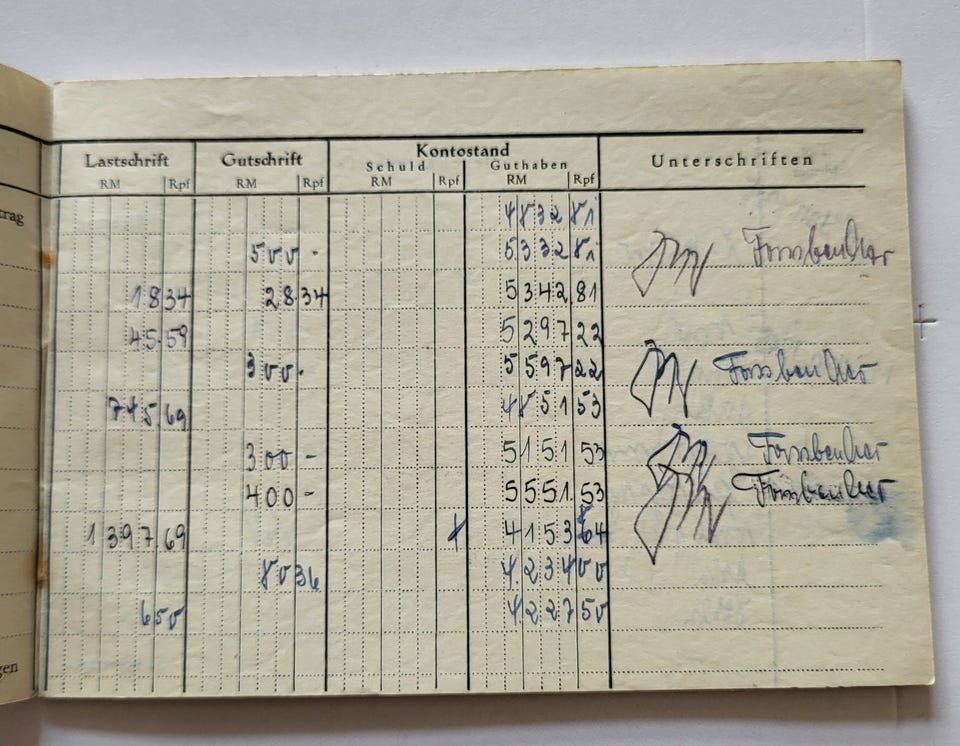 Kontostand
Lastschrift Gutschrift Schuld Guthaben Unterschriften
RM Rpf RM Rpf RM Rpf RM Rpf
trag
4832 81
500 - 5332 81
18 34 28 34 5342 81
45 59 5297 22
300 - 5597 22
745 69 4851 53
300 - 5151 53
400 - 5551 53
1397 69 4153 64
80 36 4234 00
6 50 4227 50
gen